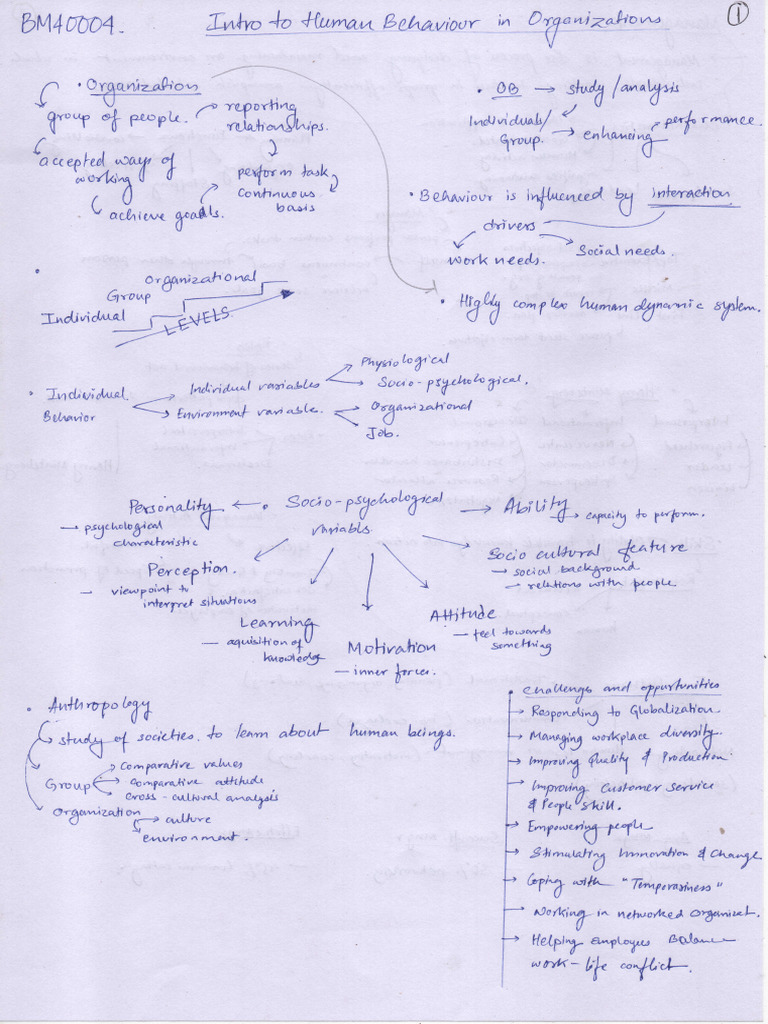 BM40004. Intro to Human Behaviour in Organizations 1
• Organization
group of people.
reporting
relationships.
accepted ways of
working
perform task
continuous
basis
achieve goals.
• OB → study/analysis
Individuals/
Group. → enhancing performance.
• Behaviour is influenced by interaction
drivers
work needs. Social needs.
• Highly complex human dynamic system.
Organizational
Group
Individual
LEVELS
• Individual
Behavior
Individual variables
Physiological
Socio-psychological.
Environment variables.
Organizational
Job.
• Socio-psychological
variable.
Personality
→ psychological
characteristic
Perception.
- viewpoint to
interpret situations
Learning
- aquisition of
knowledge
Motivation
- inner forces.
Attitude
- feel towards
something
Socio cultural feature
→ social background
→ relations with people
→ Ability
→ capacity to perform.
• Anthropology
study of societies to learn about human beings.
Group
comparative values
comparative attitude
cross-cultural analysis
Organization
→ culture
environment.
• Challenges and oppurtunities
→ Responding to Globalization.
→ Managing workplace diversity.
→ Improving Quality & Production
→ Improving Customer service
& People skill.
→ Empowering people
→ Stimulating Innovation & Change
→ Coping with "Temporariness"
→ Working in networked organizat.
→ Helping employees Balance
work-life conflict.